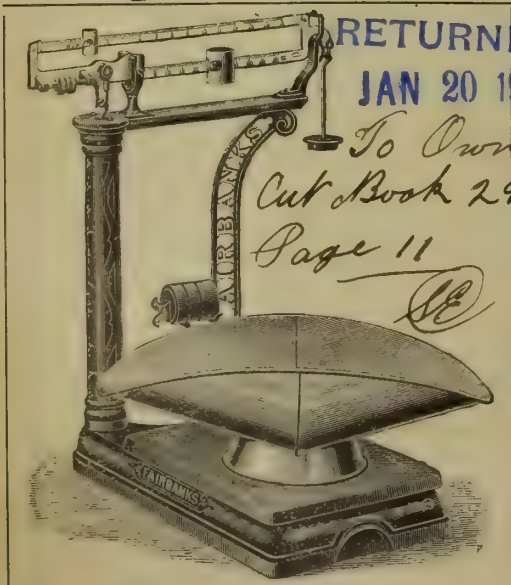 RETURN
JAN 20
To Own
Cut Book
Page 11
SE
AIRBANKS
FAIRBANKS